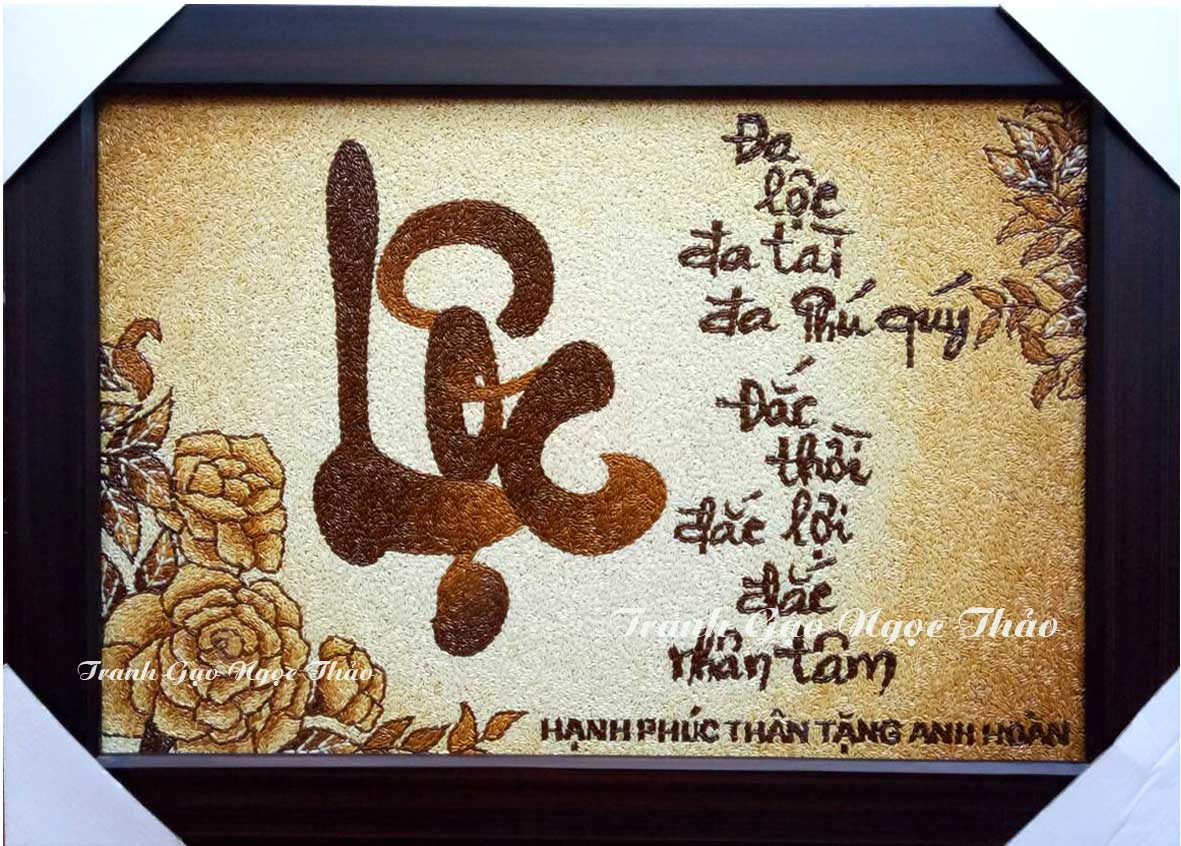 Lộc
Đa
lộc
đa tài
đa Phú quý
Đắc
thời
đắc lợi
đắc
nhân tâm
Tranh Gạo Ngọc Thảo
Tranh Gạo Ngọc Thảo
HẠNH PHÚC THÂN TẶNG ANH HOÀN